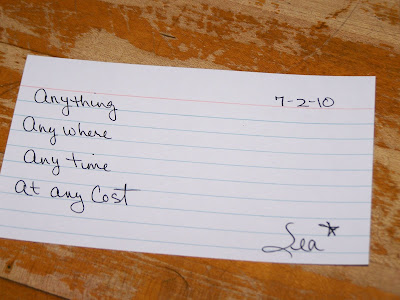 Anything
7-2-10
Any where
Any time
At any Cost
Lea*